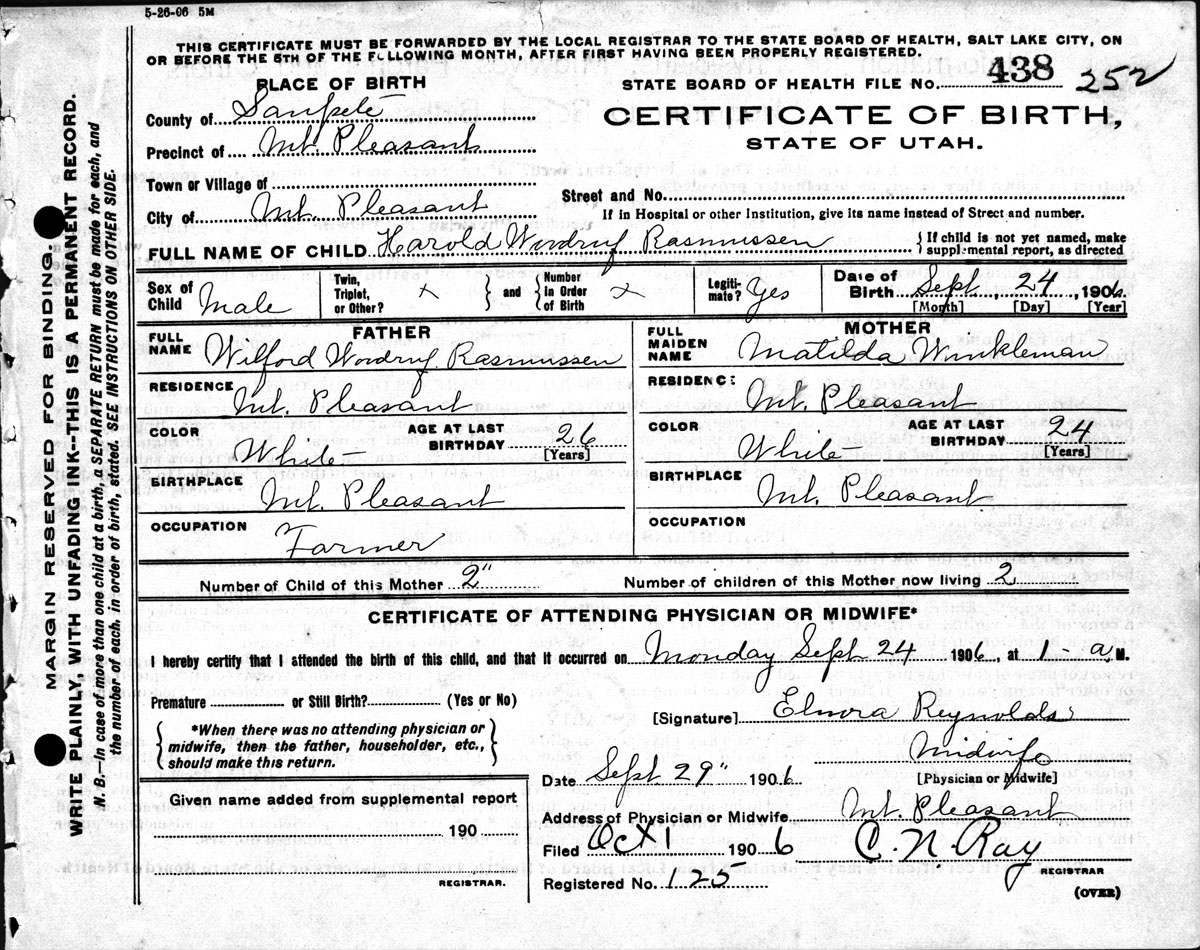 5-26-06 5M
THIS CERTIFICATE MUST BE FORWARDED BY THE LOCAL REGISTRAR TO THE STATE BOARD OF HEALTH, SALT LAKE CITY, ON
OR BEFORE THE 5TH OF THE FOLLOWING MONTH, AFTER FIRST HAVING BEEN PROPERLY REGISTERED.
PLACE OF BIRTH
County of Sanpete
Precinct of Mt. Pleasant
Town or Village of
City of Mt. Pleasant
STATE BOARD OF HEALTH FILE No. 438 252
CERTIFICATE OF BIRTH,
STATE OF UTAH.
Street and No.
If in Hospital or other Institution, give its name instead of Street and number.
FULL NAME OF CHILD Harold Wordruf Rasmussen
{ If child is not yet named, make
supplemental report, as directed
Sex of Child Male
Twin, Triplet, or Other? x } and { Number in Order of Birth x
Legitimate? Yes
Date of Birth Sept, 24, 1906.
[Month] [Day] [Year]
FATHER
FULL NAME Wilford Wordruf Rasmussen
RESIDENCE Mt. Pleasant
COLOR White AGE AT LAST BIRTHDAY 26
[Years]
BIRTHPLACE Mt. Pleasant
OCCUPATION Farmer
MOTHER
FULL MAIDEN NAME Matilda Winkleman
RESIDENCE Mt. Pleasant
COLOR White AGE AT LAST BIRTHDAY 24
[Years]
BIRTHPLACE Mt. Pleasant
OCCUPATION
Number of Child of this Mother 2" Number of children of this Mother now living 2
CERTIFICATE OF ATTENDING PHYSICIAN OR MIDWIFE*
I hereby certify that I attended the birth of this child, and that it occurred on Monday Sept 24 1906, at 1- a. M.
Premature or Still Birth? (Yes or No)
{ *When there was no attending physician or
midwife, then the father, householder, etc.,
should make this return. }
[Signature] Elnora Reynolds
Midwife
[Physician or Midwife]
Date Sept 29" 1906.
Address of Physician or Midwife Mt. Pleasant
Filed Oct 1 1906 C. N. Ray
REGISTRAR
Registered No. 125
(OVER)
Given name added from supplemental report
190
REGISTRAR.
MARGIN RESERVED FOR BINDING.
WRITE PLAINLY, WITH UNFADING INK--THIS IS A PERMANENT RECORD.
N. B.—In case of more than one child at a birth, a SEPARATE RETURN must be made for each, and
the number of each, in order of birth, stated. SEE INSTRUCTIONS ON OTHER SIDE.